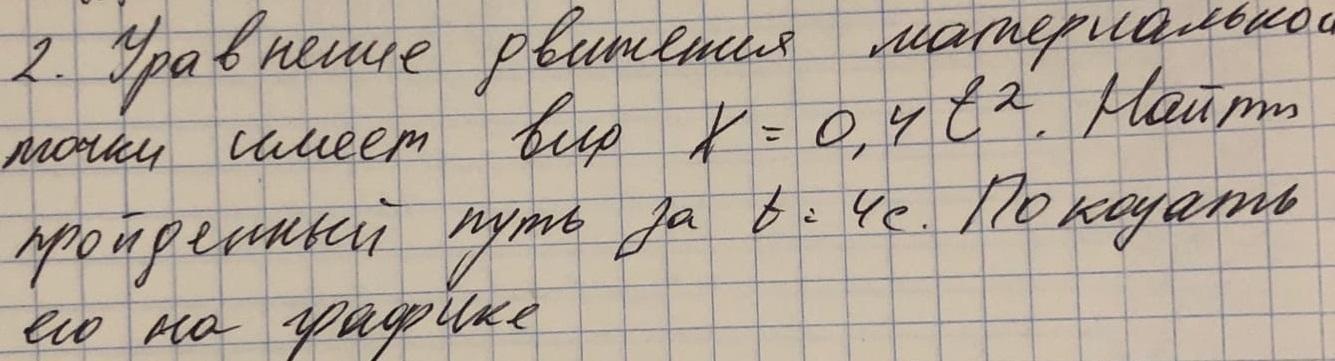 2. Уравнение движения материальной
точки имеет вид X = 0,4 t². Найти
пройденный путь за t = 4с. Показать
его на графике